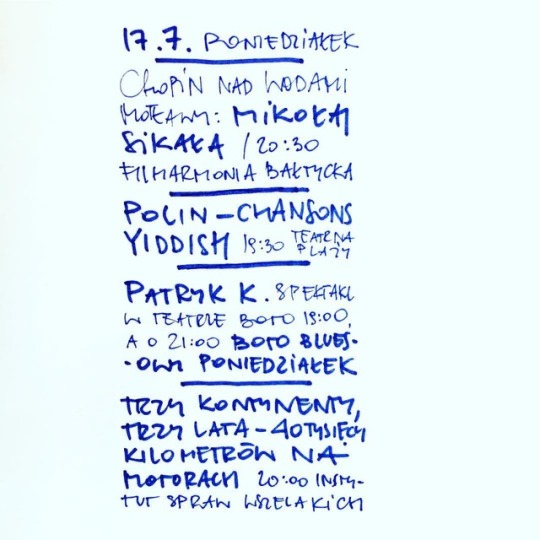 17.7. PONIEDZIAŁEK
CHOPIN NAD WODAMI
MOTŁAWY: MIKOŁAJ
SIKAŁA / 20:30
FILHARMONIA BAŁTYCKA
POLIN - CHANSONS
YIDDISH 19:30 TEATR NA
PLAŻY
PATRYK K. SPEKTAKL
W TEATRZE BOTO 19:00,
A O 21:00 BOTO BLUES-
-OWY PONIEDZIAŁEK
TRZY KONTYNENTY,
TRZY LATA - 40 TYSIĘCY
KILOMETRÓW NA
MOTORACH 20:00 INSTY-
TUT SPRAW WSZELAKICH